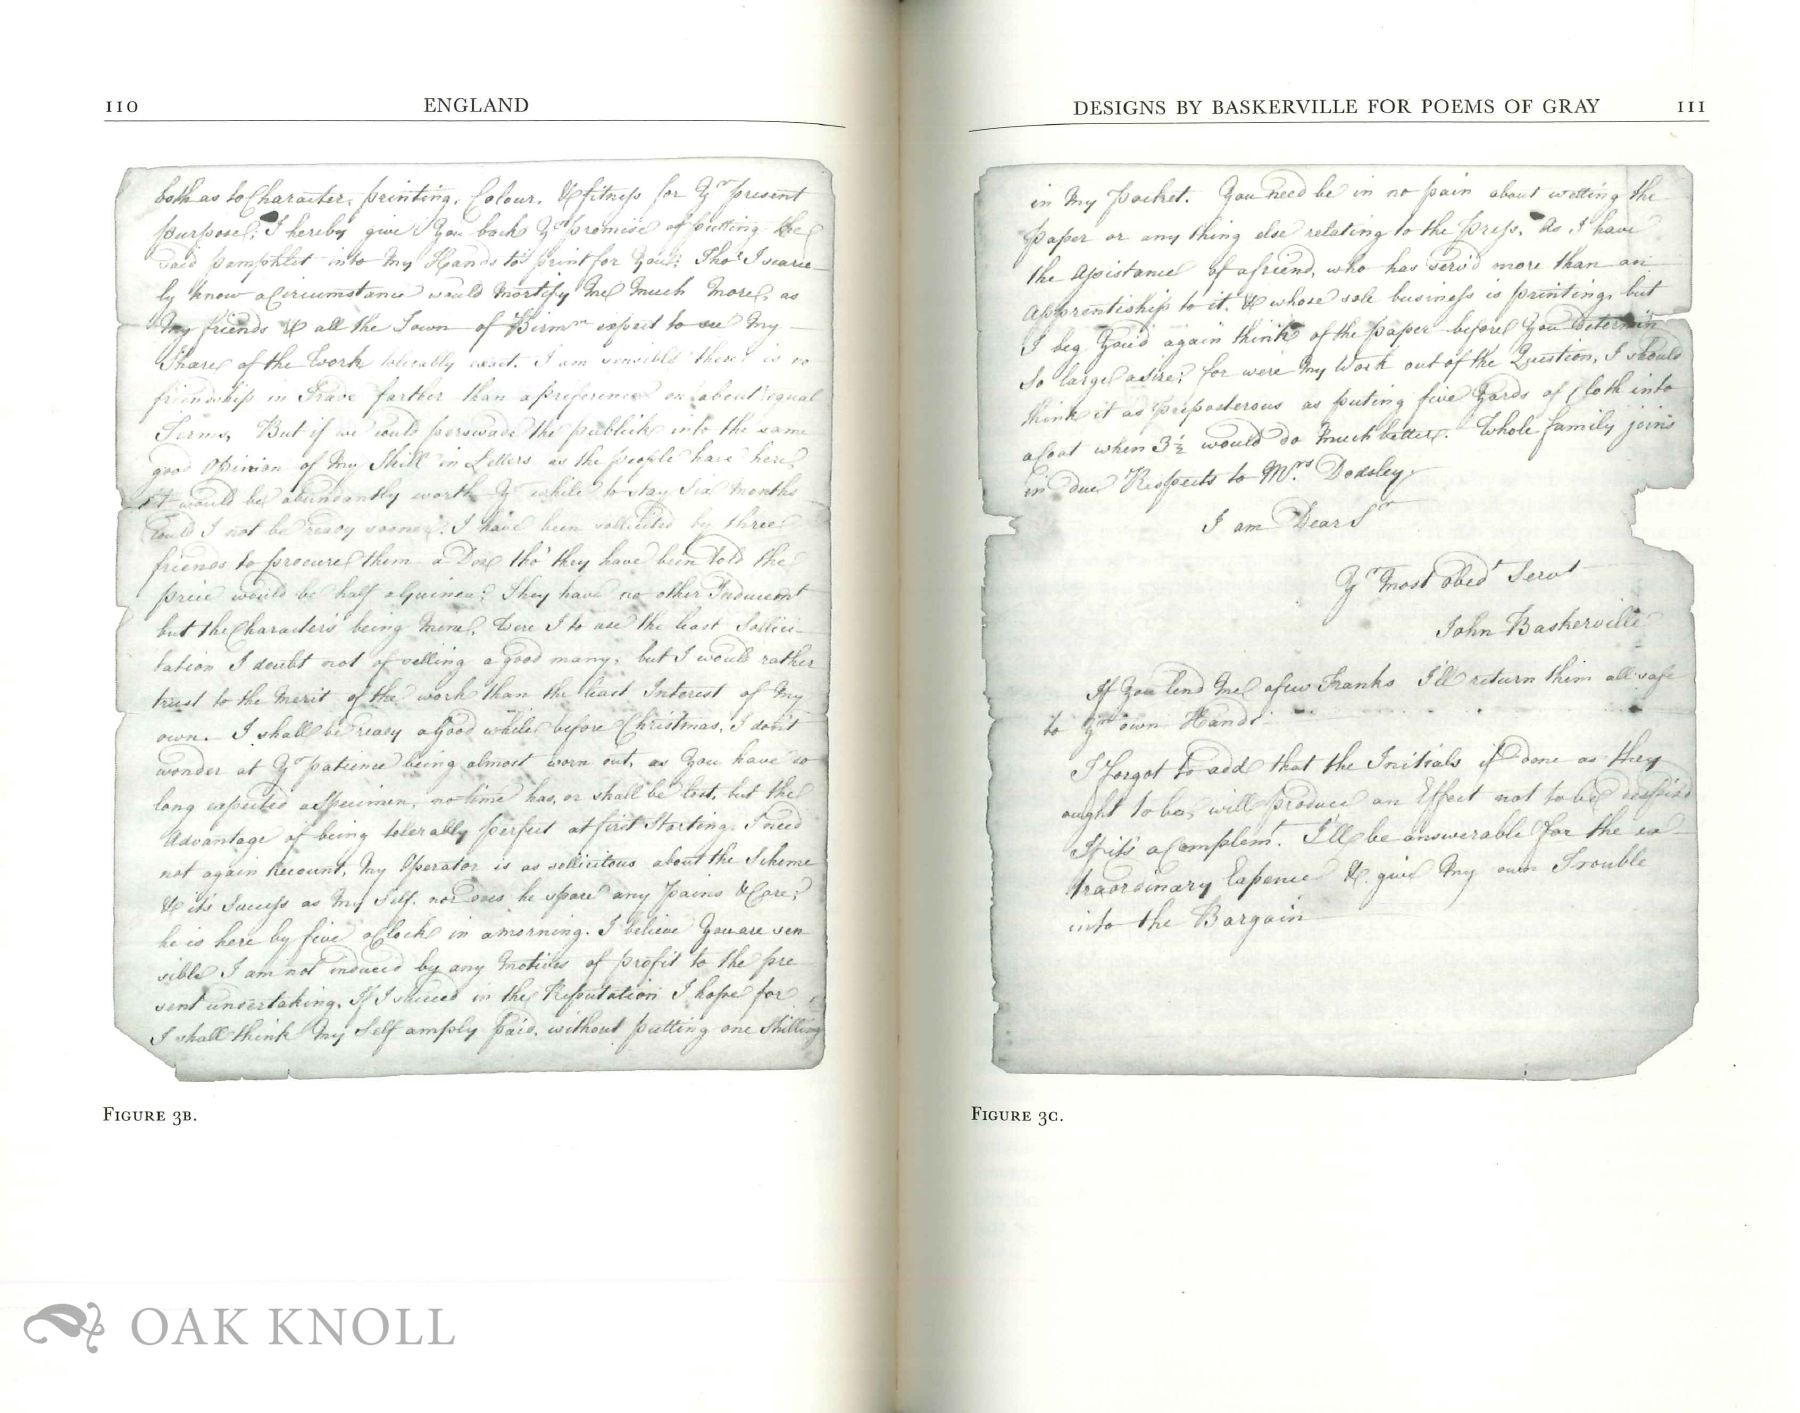 110
ENGLAND
both as to Character, printing, Colour, & fitness for Yr present
purpose; I hereby give You back Yr promise of putting the
said pamphlet into My Hands to print for You; Tho' I scarce-
ly know a Circumstance would Mortify Me Much More, as
My friends & all the Town of Birmm expect to see My
Share of the Work tolerably exact. I am sensible there is no
friendship in Trade farther than a preference on about equal
Terms, But if we could perswade the publick into the same
good Opinion of My Skill in Letters as the people have here,
it would be abundantly worth Yr while to stay Six Months
could I not be ready sooner. I have been sollicited by three
friends to procure them a Doz tho' they have been told the
price would be half a Guinea; They have no other Inducemt
but the Characters being Mine, Were I to use the least Sollici-
tation I doubt not of selling a good many, but I would rather
trust to the Merit of the work than the least Interest of My
own. I shall be ready a good while before Christmas, I don't
wonder at Yr patience being almost worn out, as You have so
long expected a Specimen, no time has, or shall be lost, but the
Advantage of being tolerably perfect at first Starting. I need
not again Recount, My Operator is as sollicitous about the Scheme
& its Success as My Self. nor does he spare any Pains & Care;
he is here by five o'Clock in a morning. I believe You are sen
sible I am not induced by any Motives of profit to the pre-
sent undertaking, If I succeed in the Reputation I hope for
I shall think My Self amply paid, without putting one Shilling
FIGURE 3B.
DESIGNS BY BASKERVILLE FOR POEMS OF GRAY
111
in My Pocket. You need be in no pain about wetting the
Paper or any thing else relating to the Press, As I have
the Assistance of a friend, who has serv'd more than an
Apprentiship to it, & whose sole business is printing, but
I beg You'd again think of the Paper before You Determin
so large a size; for were My Work out of the Question, I should
think it as Preposterous as puting five Yards of Cloth into
a Coat when 3½ would do Much better. Whole family joins
in due Respects to Mrs. Dodsley
I am Dear Sr
Yr Most obedt Servt
John Baskerville
If You lend Me a few Franks I'll return them all safe
to Yr own Hands
I forgot to add that the Initials if done as they
ought to be, will produce an Effect not to be despis'd
If its a Complemt. I'll be answerable for the ex-
traordinary Expence & give My own Trouble
into the Bargain
FIGURE 3C.
OAK KNOLL